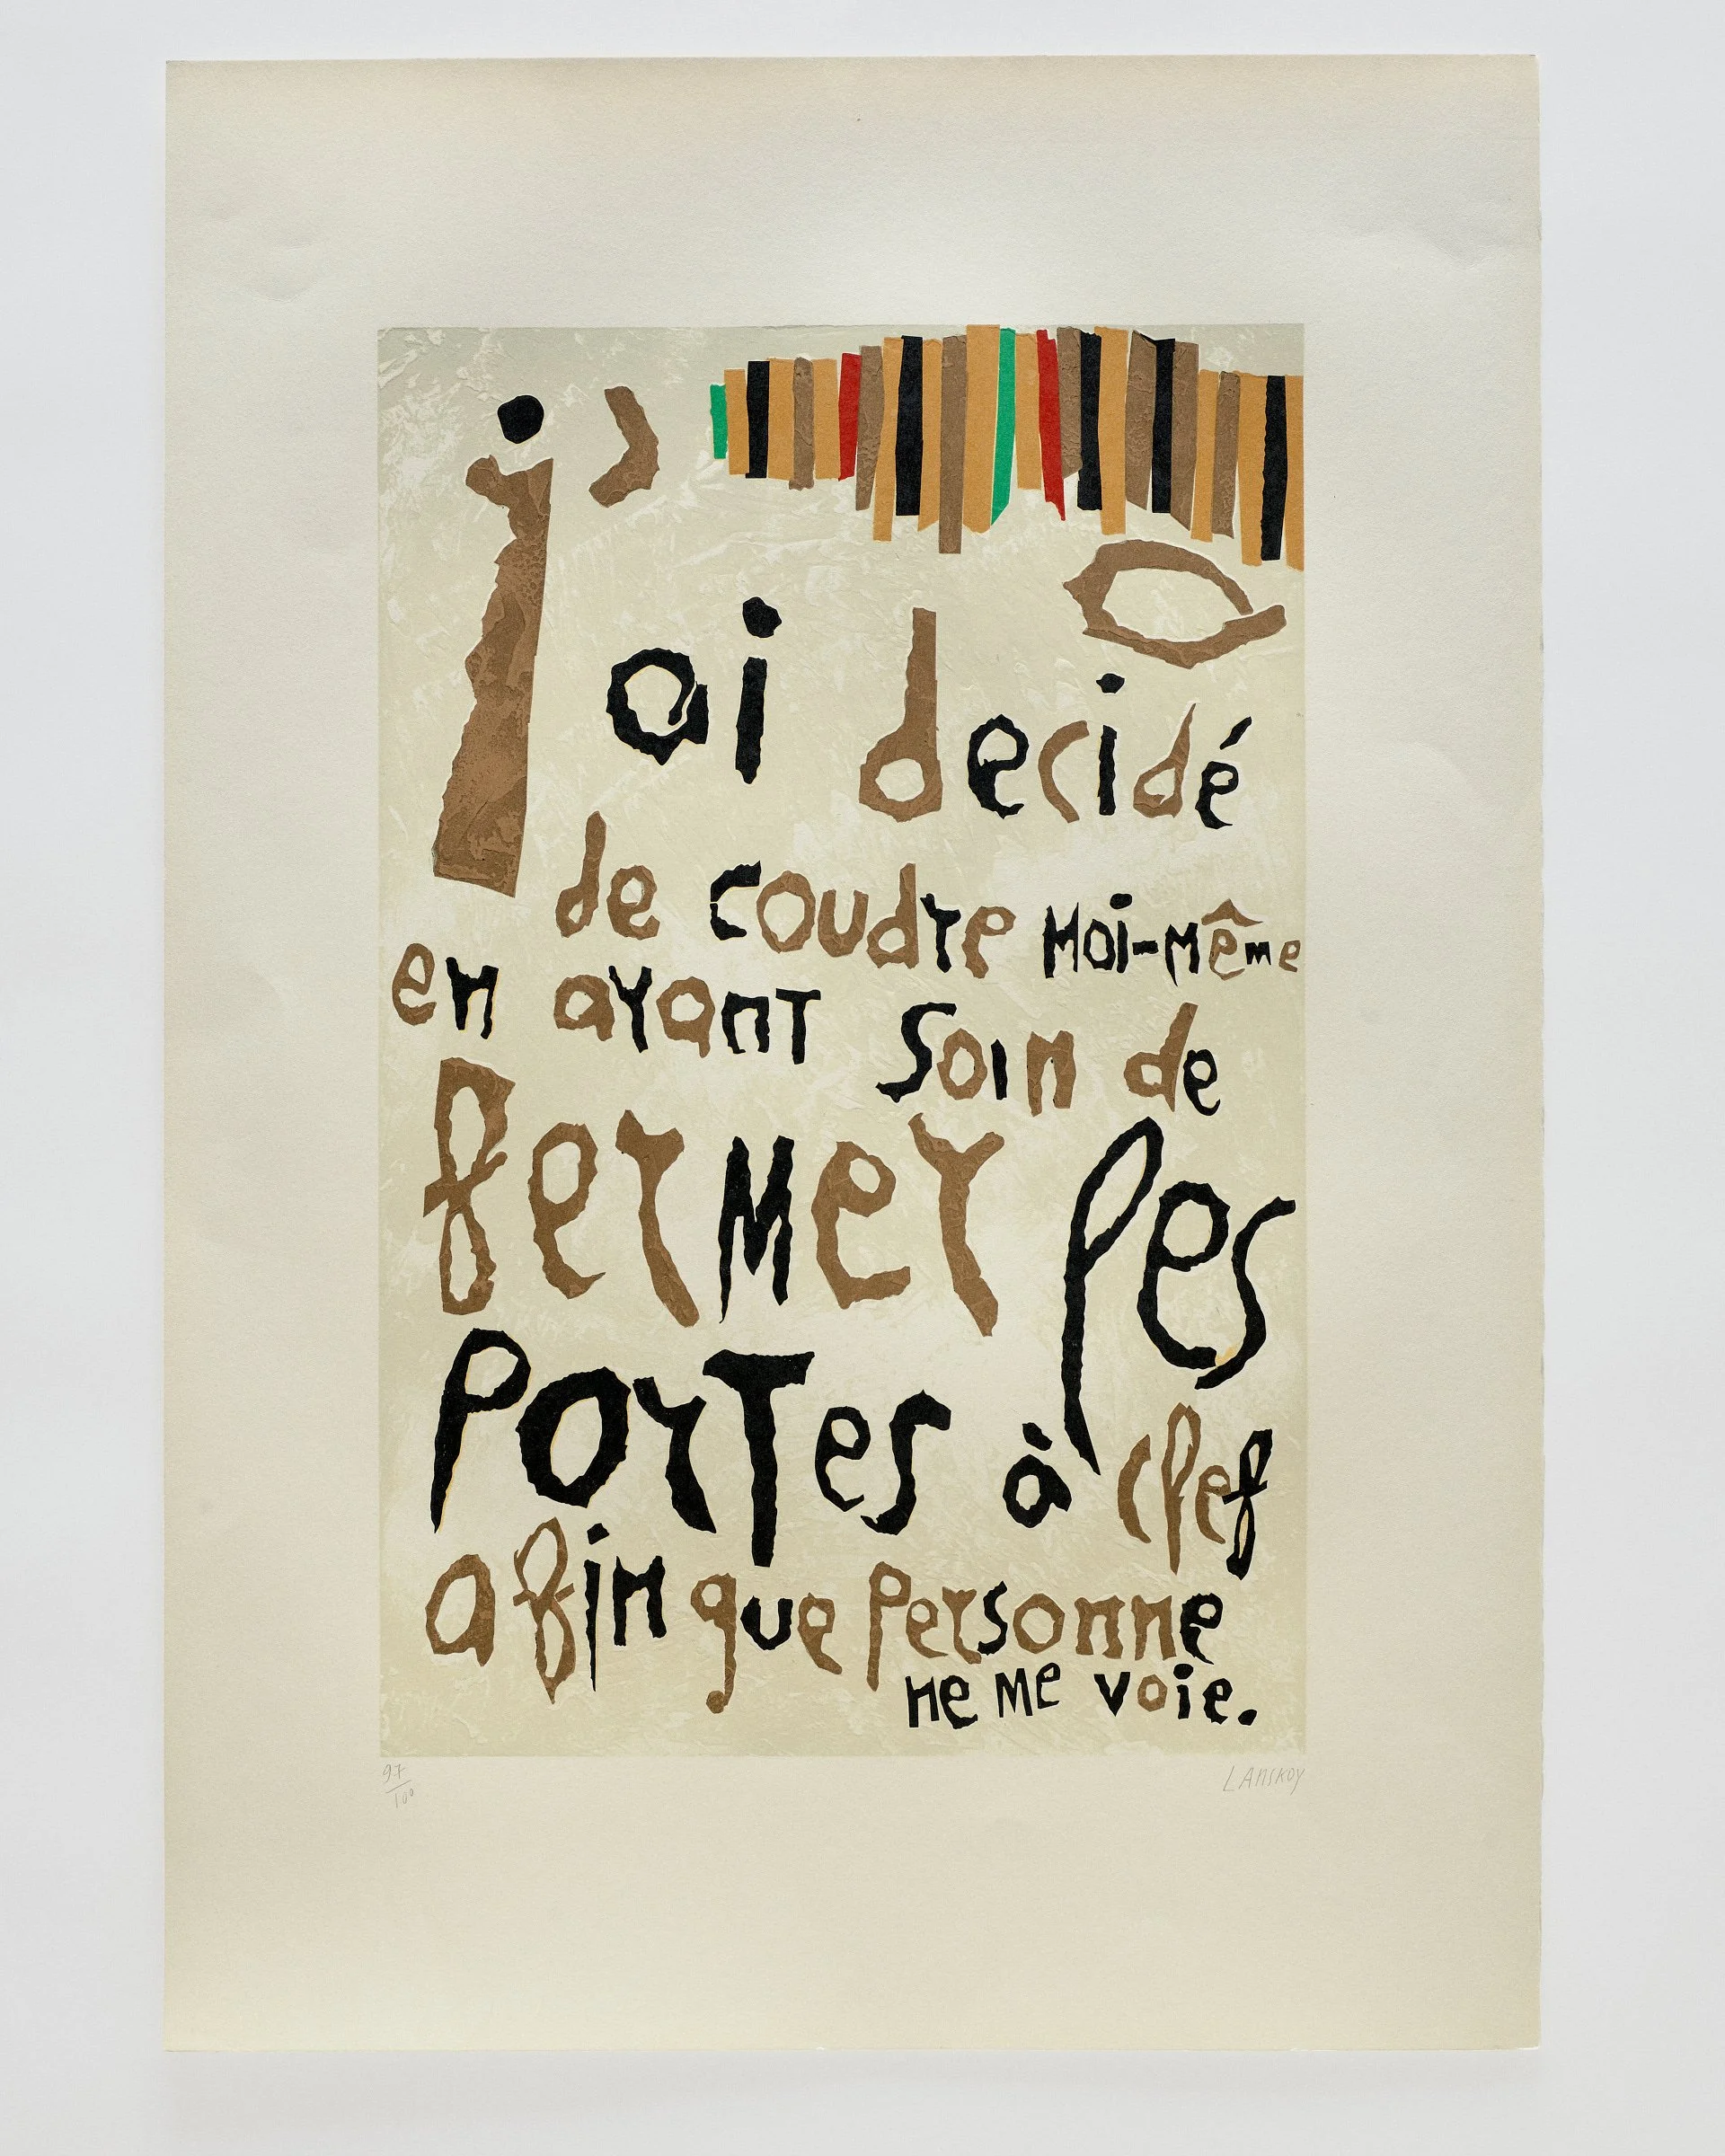 j'ai decidé
de coudre moi-même
en ayant soin de
fermer les
portes à clef
afin que personne
ne me voie.
97/100
LANSKOY